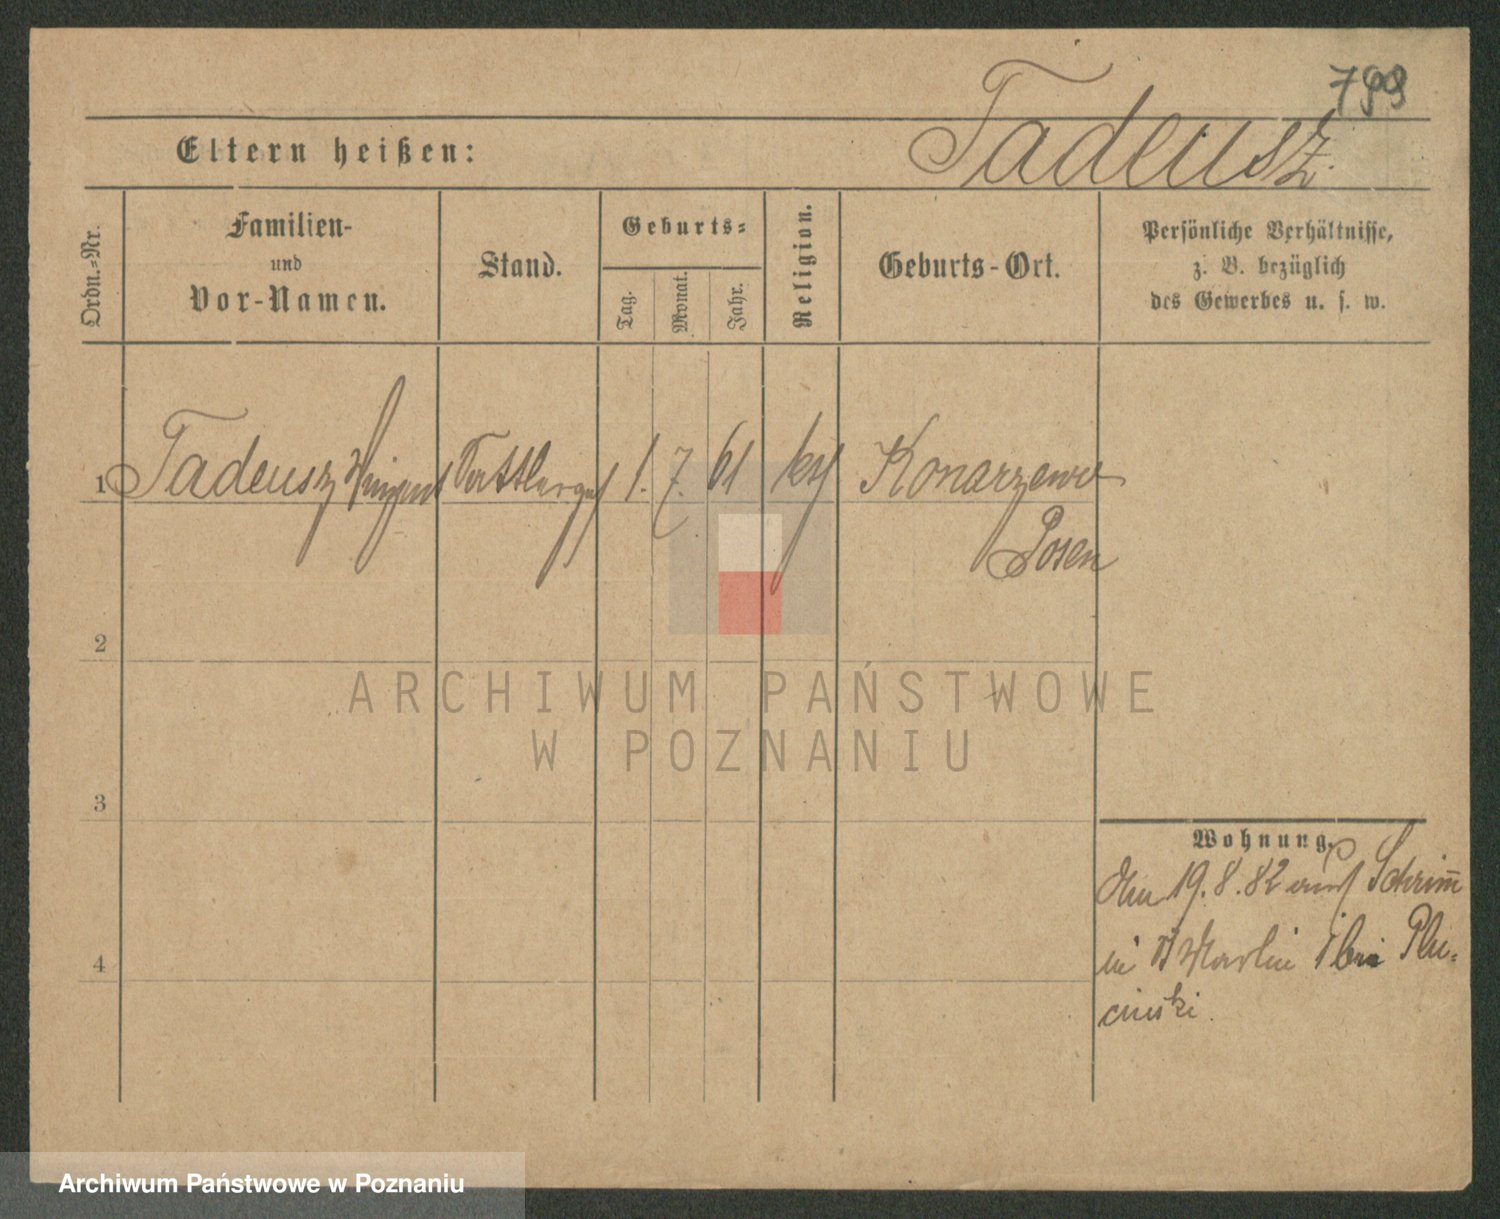 799
Tadeusz.
Eltern heißen:
Ordn.-Nr.
Familien-
und
Vor-Namen.
Stand.
Geburts-
Tag.
Monat.
Jahr.
Religion.
Geburts-Ort.
Persönliche Verhältnisse,
z. B. bezüglich
des Gewerbes u. s. w.
1 Tadeusz Vinzent Sattlerges 1. 7. 61 kth Konarzewo
Posen
2
ARCHIWUM PAŃSTWOWE
W POZNANIU
3
Wohnung.
19.8.82 auf Schrimm
in St Martin 1 bei Plu-
cinski.
4
Archiwum Państwowe w Poznaniu